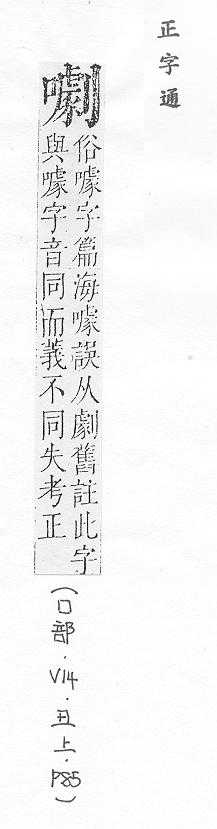 正字通
俗噱字篇海噱誤从劇舊註此字
與噱字音同而義不同失考正
(口部．V14．丑上．P85)